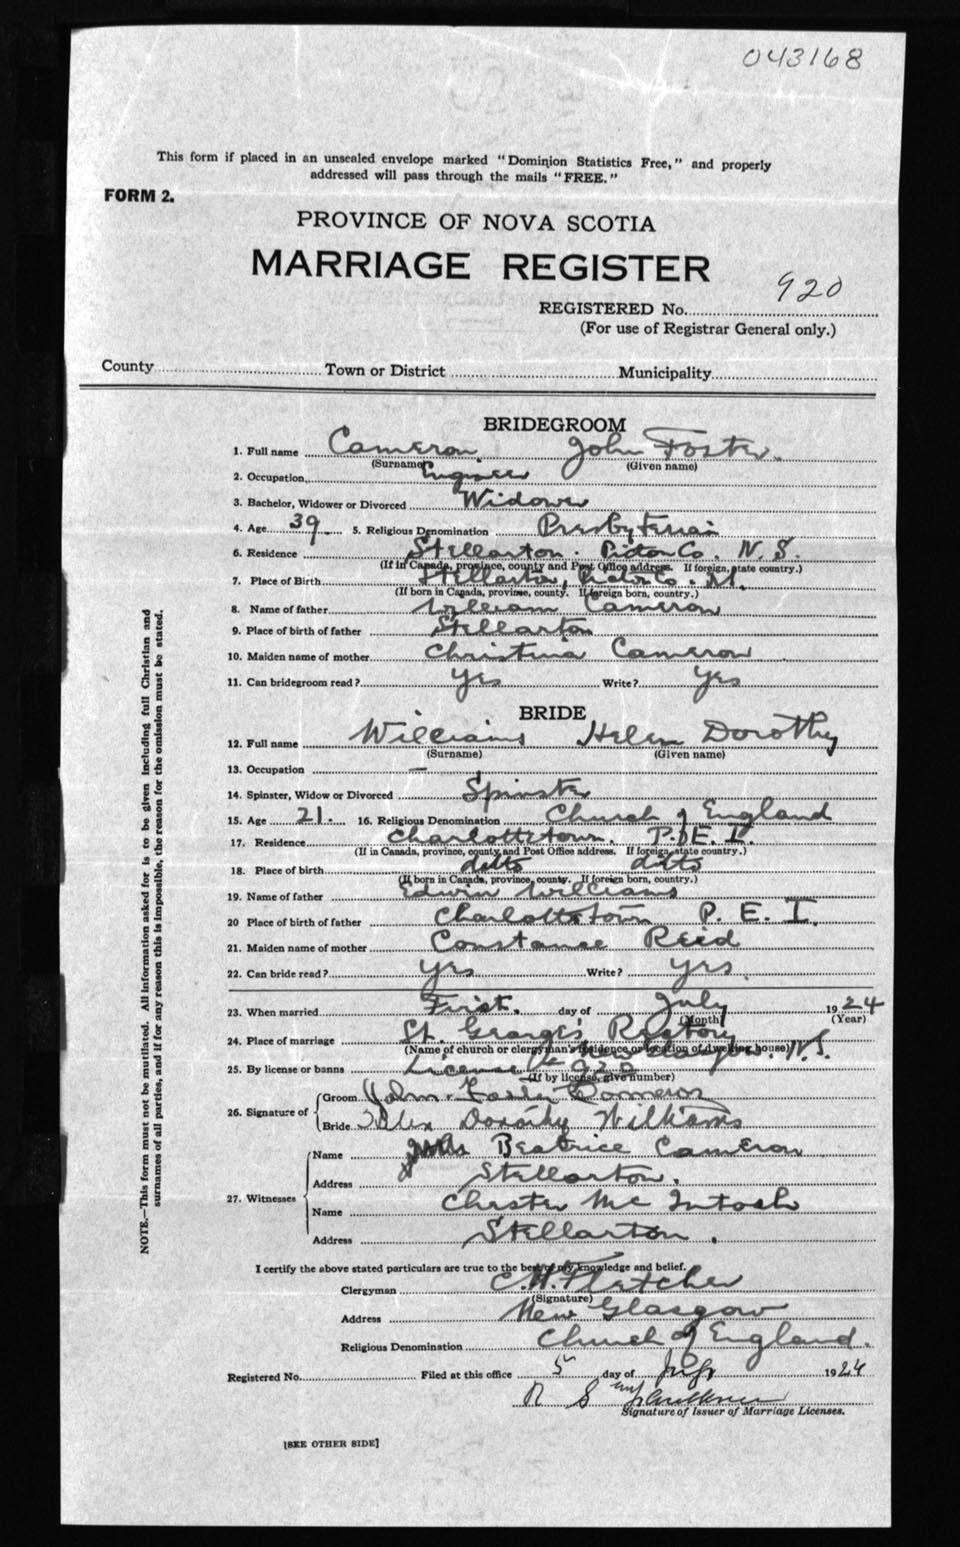 043168
This form if placed in an unsealed envelope marked "Dominion Statistics Free," and properly
addressed will pass through the mails "FREE."
FORM 2.
PROVINCE OF NOVA SCOTIA
MARRIAGE REGISTER
REGISTERED No. 920
(For use of Registrar General only.)
County Town or District Municipality
BRIDEGROOM
1. Full name Cameron John Foster
(Surname) (Given name)
2. Occupation Engineer
3. Bachelor, Widower or Divorced Widower
4. Age 39 5. Religious Denomination Presbyterian
6. Residence Stellarton. Pictou Co. N. S.
(If in Canada, province, county and Post Office address. If foreign, state country.)
7. Place of Birth Stellarton, Pictou Co.
(If born in Canada, province, county. If foreign born, country.)
8. Name of father William Cameron
9. Place of birth of father Stellarton
10. Maiden name of mother Christina Cameron
11. Can bridegroom read? Yes Write? Yes
BRIDE
12. Full name Williams Helen Dorothy
(Surname) (Given name)
13. Occupation —
14. Spinster, Widow or Divorced Spinster
15. Age 21. 16. Religious Denomination Church of England
17. Residence Charlottetown. P. E. I.
(If in Canada, province, county and Post Office address. If foreign, state country.)
18. Place of birth ditto ditto
(If born in Canada, province, county. If foreign born, country.)
19. Name of father Edwin Williams
20 Place of birth of father Charlottetown P. E. I.
21. Maiden name of mother Constance Reid
22. Can bride read? yes Write? yes.
23. When married First. day of July 1924
(Month) (Year)
24. Place of marriage St. George's Rectory
(Name of church or clergyman's residence or location of dwelling house) N.S.
25. By license or banns License # 920
(If by license, give number)
26. Signature of Groom John Foster Cameron
Bride Helen Dorothy Williams
27. Witnesses Name Beatrice Cameron
Address Stellarton.
Name Chester McIntosh
Address Stellarton.
I certify the above stated particulars are true to the best of my knowledge and belief.
Clergyman C. W. Fletcher
(Signature)
Address New Glasgow
Religious Denomination Church of England.
Registered No. Filed at this office 5 day of July 1924
R S
Signature of Issuer of Marriage Licenses.
[SEE OTHER SIDE]
NOTE.—This form must not be mutilated. All information asked for is to be given including full Christian and
surnames of all parties, and if for any reason this is impossible, the reason for the omission must be stated.